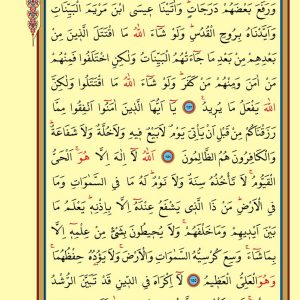 وَرَفَعَ بَعْضَهُمْ دَرَجَاتٍ وَاٰتَيْنَا عِيسَى ابْنَ مَرْيَمَ الْبَيِّنَاتِ
وَاَيَّدْنَاهُ بِرُوحِ الْقُدُسِ وَلَوْ شَاءَ اللّٰهُ مَا اقْتَتَلَ الَّذِينَ مِنْ
بَعْدِهِمْ مِنْ بَعْدِ مَا جَاءَتْهُمُ الْبَيِّنَاتُ وَلٰكِنِ اخْتَلَفُوا فَمِنْهُمْ
مَنْ اٰمَنَ وَمِنْهُمْ مَنْ كَفَرَ وَلَوْ شَاءَ اللّٰهُ مَا اقْتَتَلُوا وَلٰكِنَّ
اللّٰهَ يَفْعَلُ مَا يُرِيدُ ﴿٢٥٣﴾ يَا اَيُّهَا الَّذِينَ اٰمَنُوا اَنْفِقُوا مِمَّا
رَزَقْنَاكُمْ مِنْ قَبْلِ اَنْ يَاْتِيَ يَوْمٌ لَا بَيْعٌ فِيهِ وَلَا خُلَّةٌ وَلَا شَفَاعَةٌ
وَالْكَافِرُونَ هُمُ الظَّالِمُونَ ﴿٢٥٤﴾ اَللّٰهُ لَا اِلٰهَ اِلَّا هُوَ اَلْحَيُّ
الْقَيُّومُ لَا تَاْخُذُهُ سِنَةٌ وَلَا نَوْمٌ لَهُ مَا فِي السَّمٰوَاتِ وَمَا
فِي الْاَرْضِ مَنْ ذَا الَّذِي يَشْفَعُ عِنْدَهُ اِلَّا بِاِذْنِهِ يَعْلَمُ مَا
بَيْنَ اَيْدِيهِمْ وَمَا خَلْفَهُمْ وَلَا يُحِيطُونَ بِشَيْءٍ مِنْ عِلْمِهِ اِلَّا
بِمَا شَاءَ وَسِعَ كُرْسِيُّهُ السَّمٰوَاتِ وَالْاَرْضَ وَلَا يَؤُدُهُ حِفْظُهُمَا
وَهُوَ الْعَلِيُّ الْعَظِيمُ ﴿٢٥٥﴾ لَا اِكْرَاهَ فِي الدِّينِ قَدْ تَبَيَّنَ الرُّشْدُ